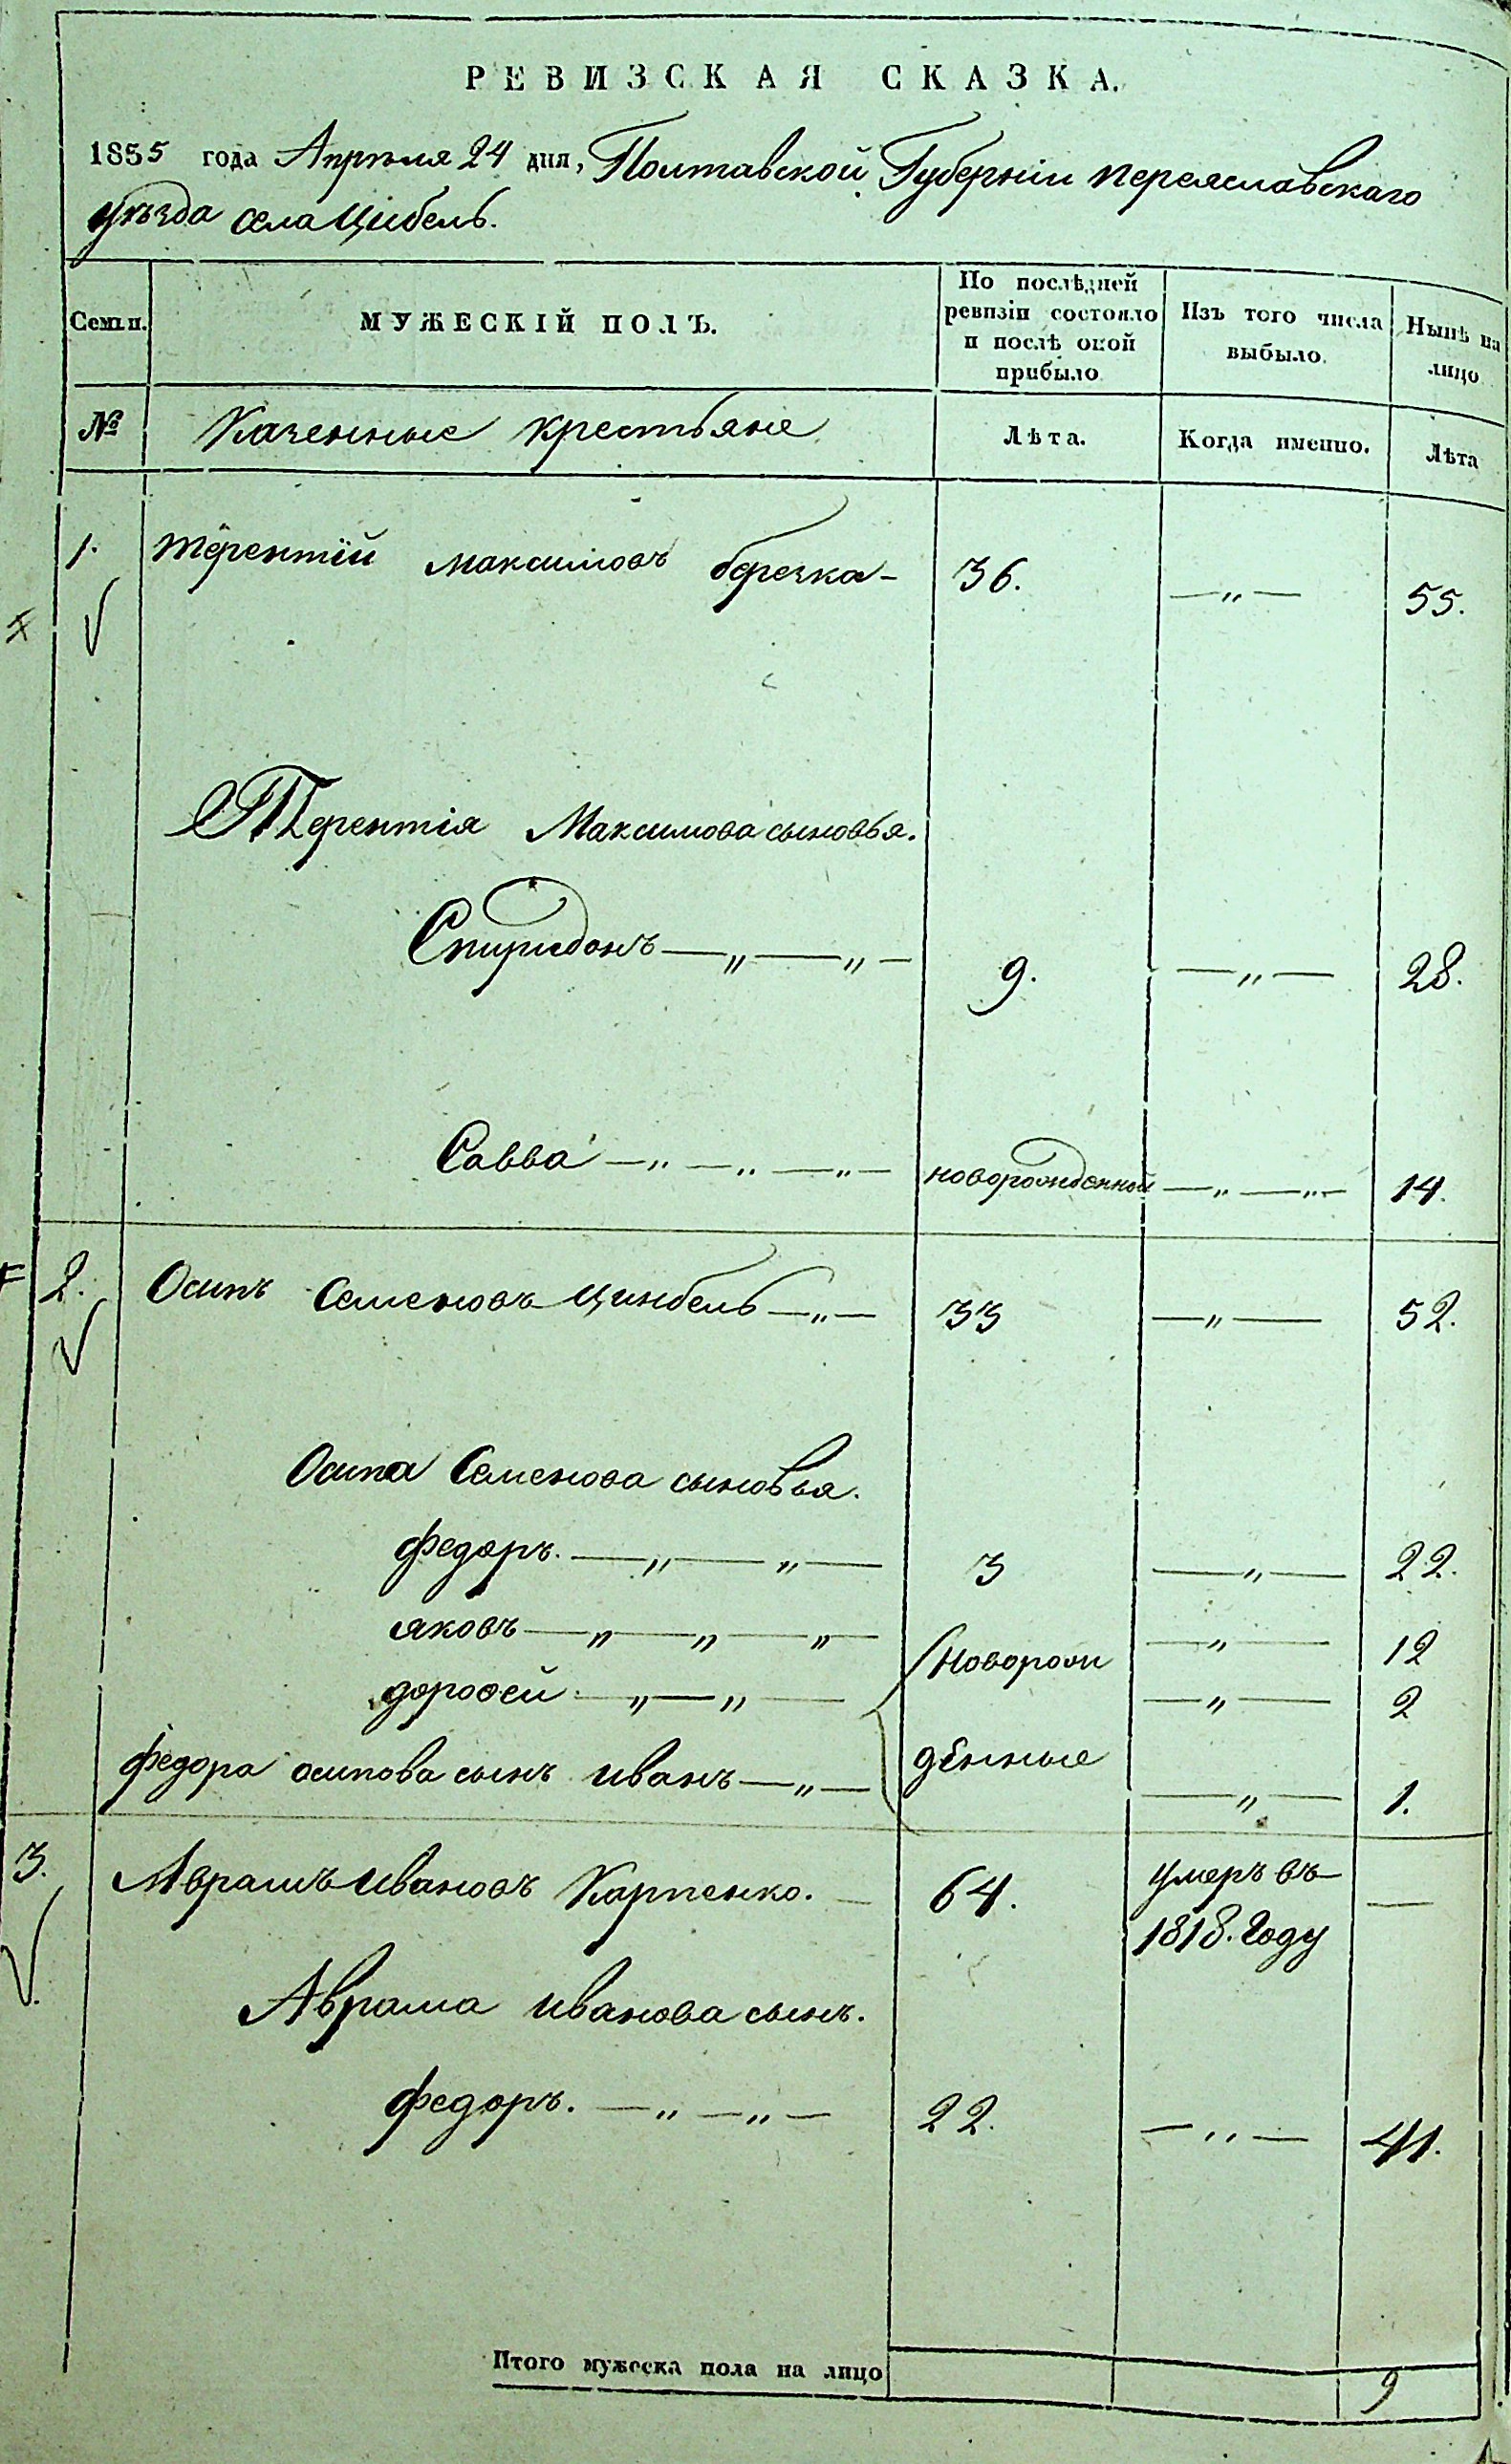 РЕВИЗСКАЯ СКАЗКА.
1855 года Апреля 24 дня, Полтавской Губерніи переяславскаго
уѣзда села Цибель.
Семьи. МУЖЕСКІЙ ПОЛЪ. По послѣдней ревизіи состояло и послѣ оной прибыло Изъ того числа выбыло. Нынѣ на лицо
№ Казенные крестьяне Лѣта. Когда именно. Лѣта
1. терентій максимовъ березка- 36. —„— 55.
Терентія Максимова сыновья.
Спиридонъ —„—„— 9. —„— 28.
Савва —„—„—„— новорожденной —„—„— 14.
2. Осипъ Семеновъ Цинбель —„— 33 —„— 52.
Осипа Семенова сыновья.
федоръ. —„—„— 3 —„— 22.
яковъ —„—„—„— Еоворож —„— 12
дорофей —„—„— —„— 2
федора осипова сынъ иванъ —„— денные —„— 1.
3. Аврамъ ивановъ Карпенко. — 64. умеръ въ —
1818. году
Аврама иванова сынъ.
федоръ. —„—„— 22. —„— 41.
Итого мужеска пола на лицо 9